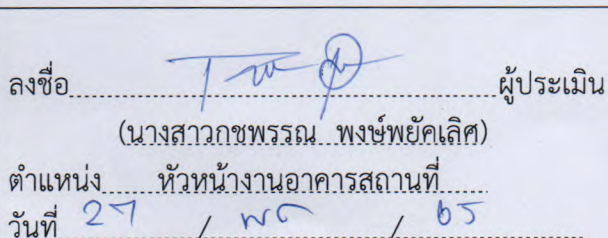 ลงชื่อ ผู้ประเมิน
(นางสาวกชพรรณ พงษ์พยัคเลิศ)
ตำแหน่ง หัวหน้างานอาคารสถานที่
วันที่ 27 / พค / 65